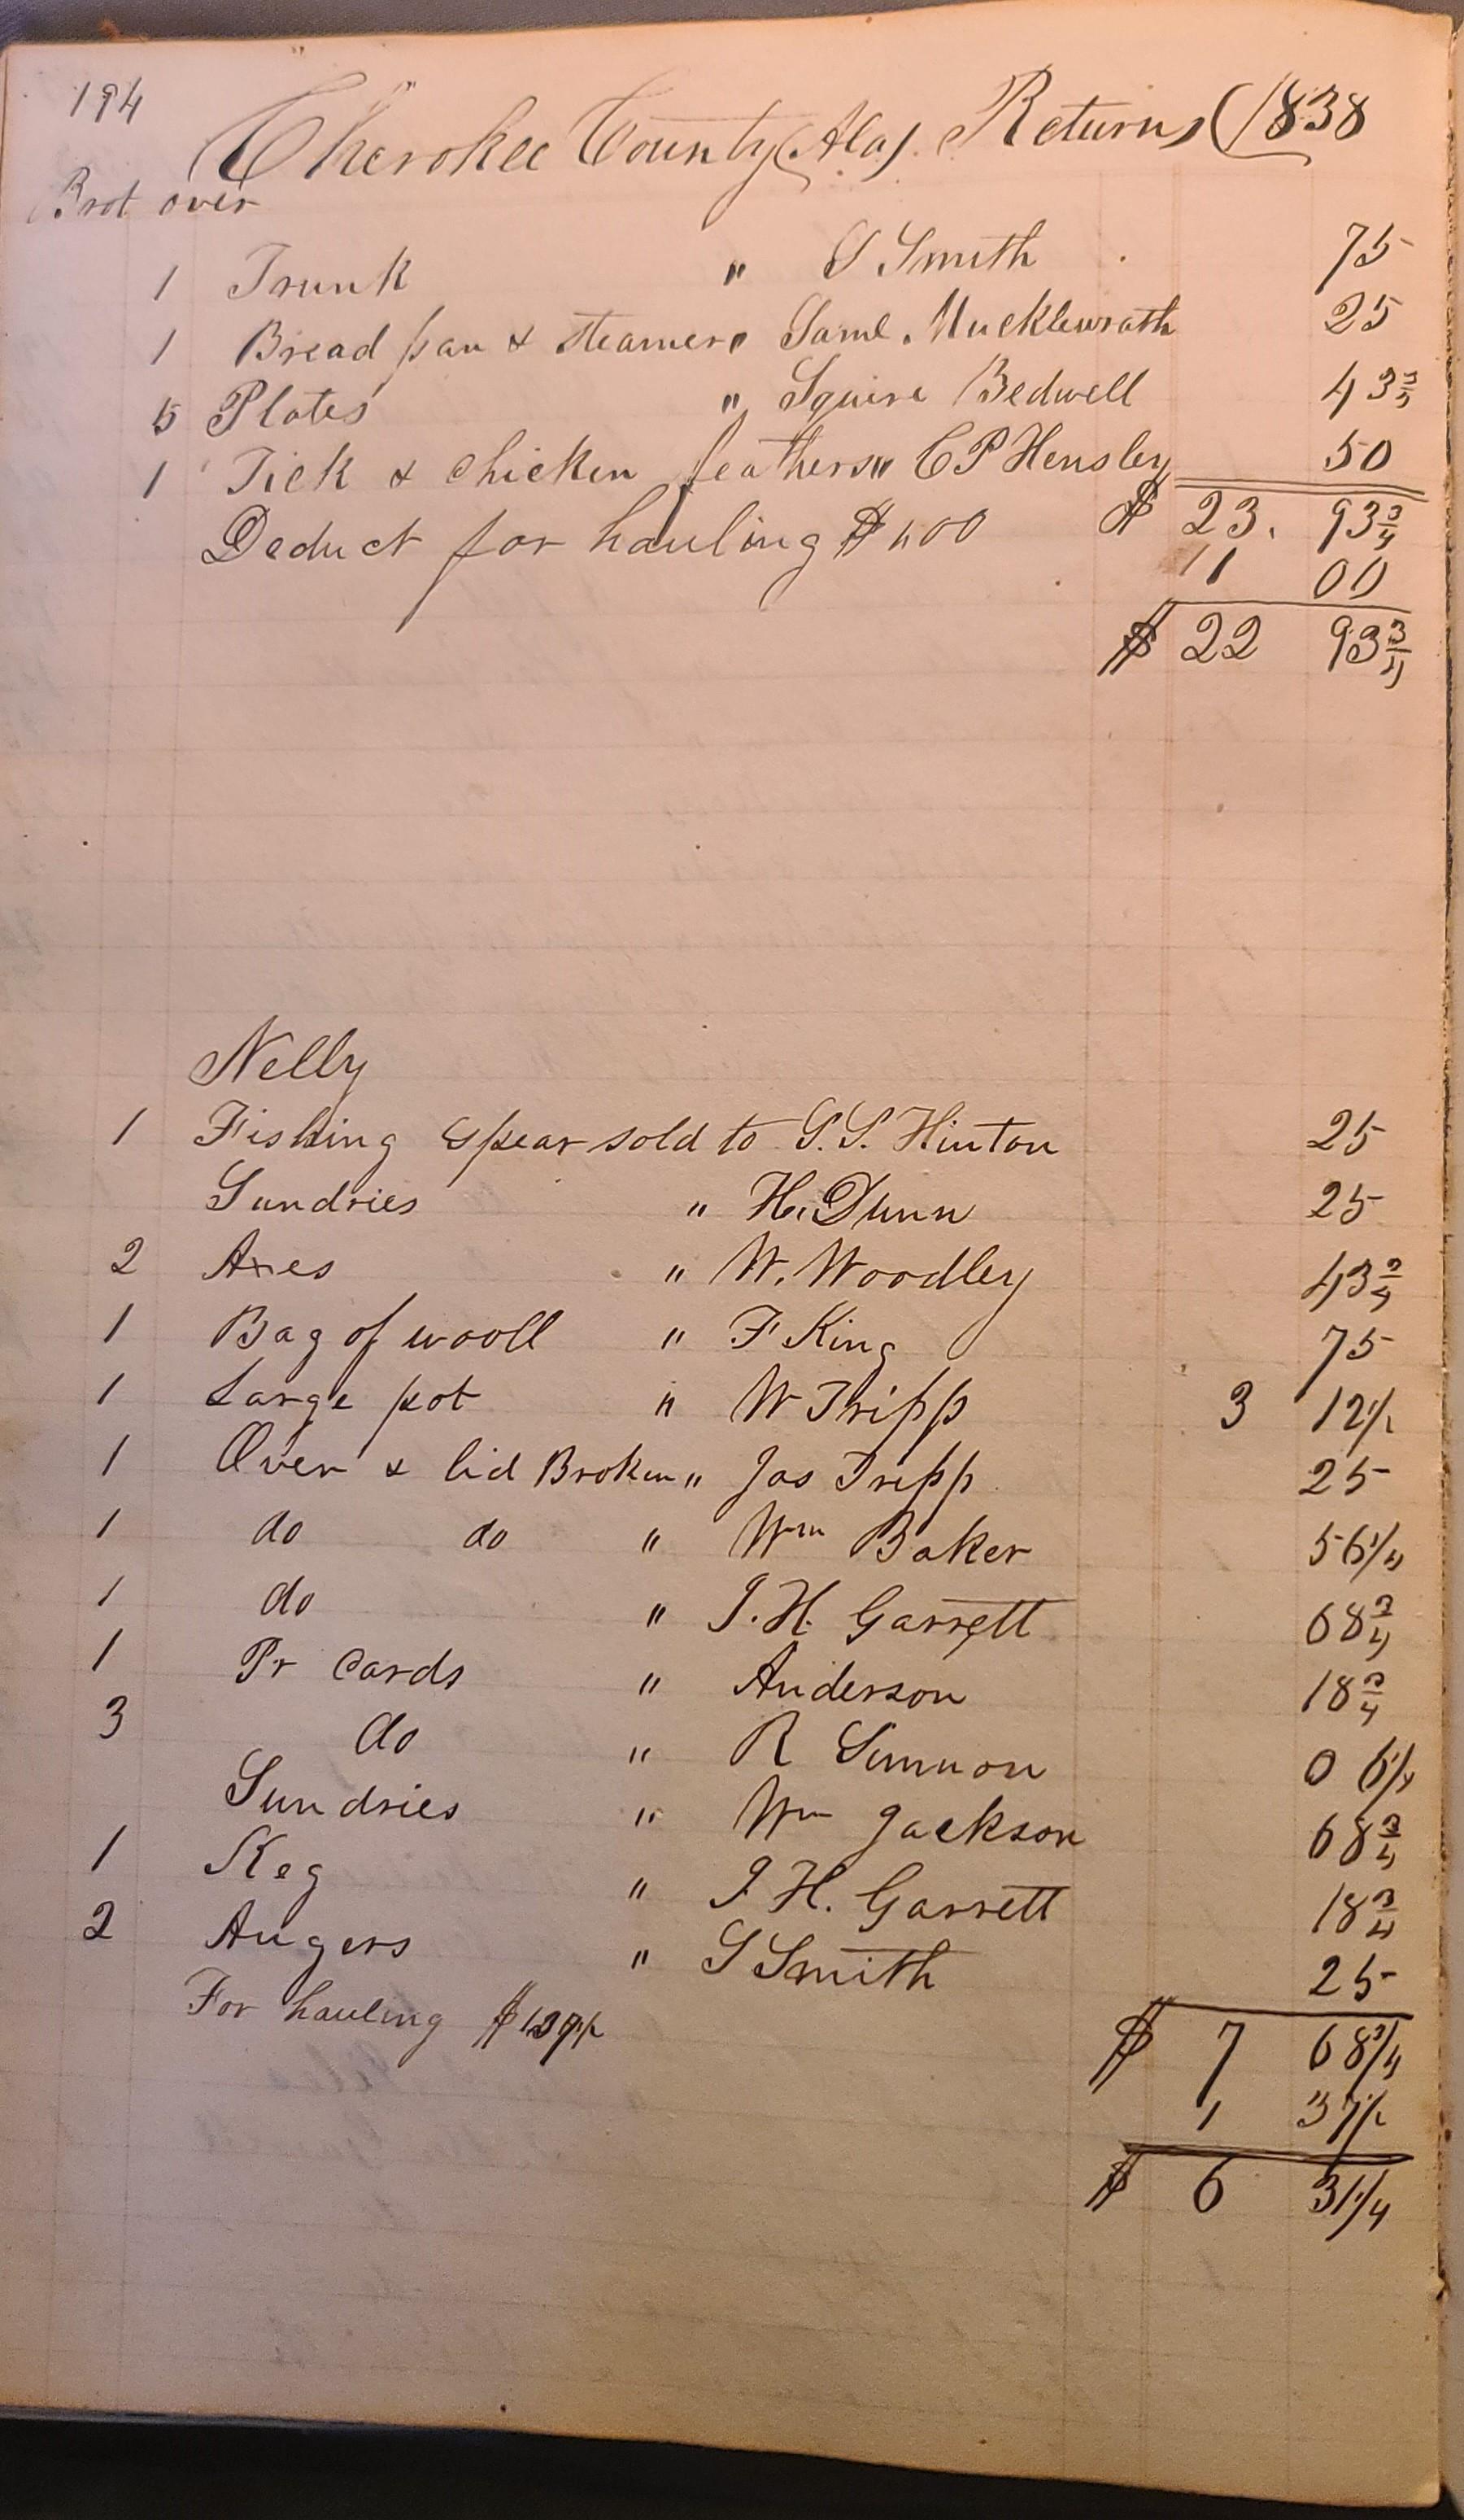 194
Cherokee County (Ala). Returns (1838
Brot over
1 Trunk " S Smith 75
1 Bread pan & steamer " Saml. Mucklewrath 25
5 Plates " Squire Bedwell 43 3/4
1 Tick & chicken feathers " C P Hensley 50
$ 23. 93 3/4
Deduct for hauling $1.00 1 00
$ 22 93 3/4
Nelly
1 Fishing spear sold to S. S. Hinton 25
Sundries " H. Dunn 25
2 Axes " W. Woodley 43 3/4
1 Bag of wooll " F King 75
1 Large pot " W Tripp 3 12 1/2
1 Oven & lid Broken " Jas Tripp 25
1 do do " Wm Baker 56 1/4
1 do " J. H. Garrett 68 3/4
1 Pr Cards " Anderson 18 3/4
3 do " R 0 6 1/4
Sundries " Wm Jackson 68 3/4
1 Keg " J H. Garrett 18 3/4
2 Augers " S Smith 25
$ 7 68 3/4
For hauling $1.37 1/2 1 37 1/2
$ 6 31 1/4